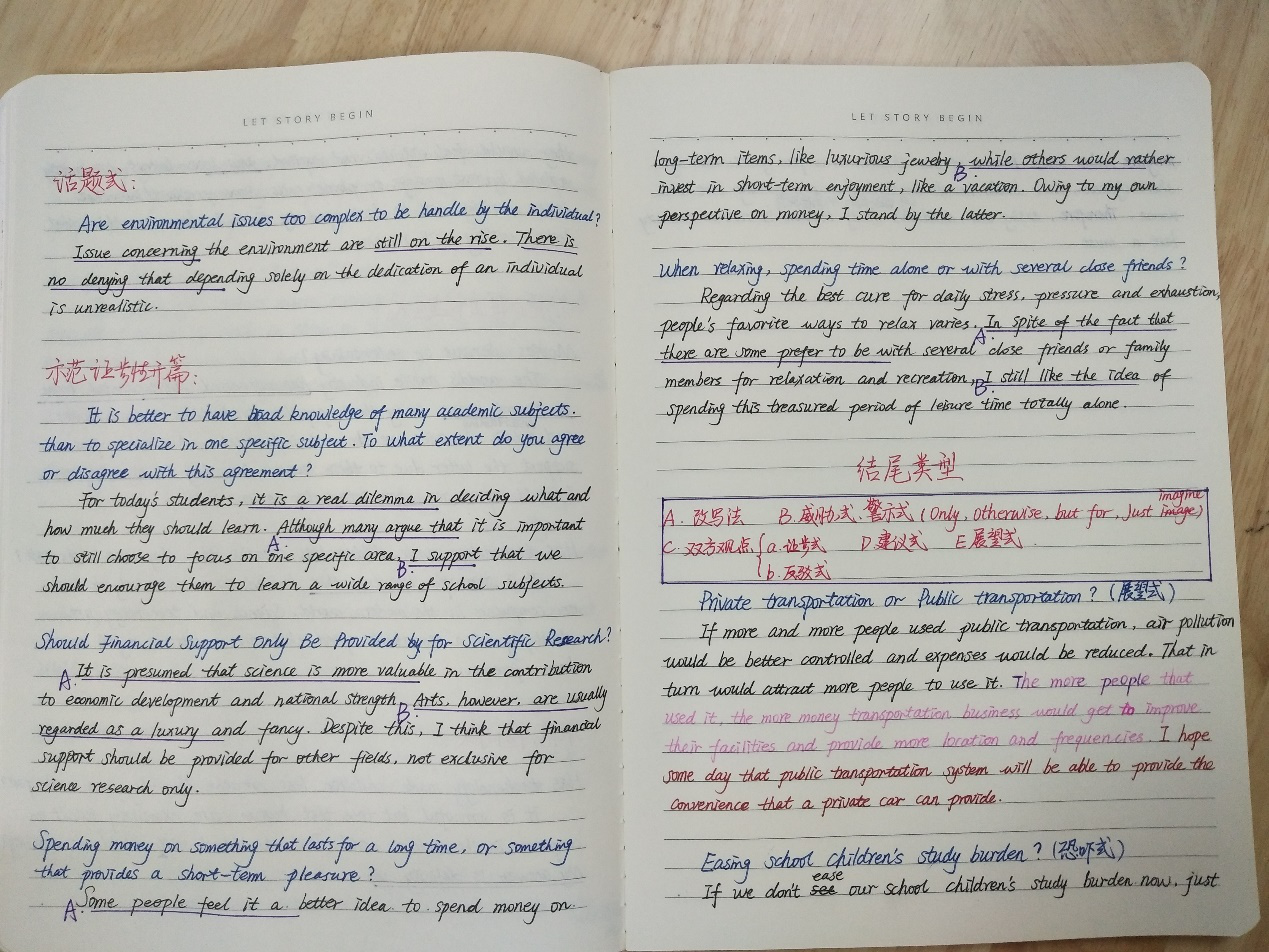 LET STORY BEGIN
话题式:
Are environmental issues too complex to be handle by the individual?
Issue concerning the environment are still on the rise. There is
no denying that depending solely on the dedication of an individual
is unrealistic.
示范让步特开篇:
It is better to have boad knowledge of many academic subjects.
than to specialize in one specific subject. To what extent do you agree
or disagree with this agreement?
For today's students, it is a real dilemma in deciding what and
how much they should learn. Although many argue that it is important
A.
to still choose to focus on one specific area, I support that we
B.
should encourage them to learn a wide range of school subjects.
Should Financial Support Only Be Provided by for Scientific Research?
A. It is presumed that science is more valuable in the contribution
to economic development and national strength. Arts, however, are usually
B.
regarded as a luxury and fancy. Despite this, I think that financial
support should be provided for other fields, not exclusive for
science research only.
Spending money on something that lasts for a long time, or something
that provides a short-term pleasure?
A. Some people feel it a better idea to spend money on
LET STORY BEGIN
long-term items, like luxurious jewelry, while others would rather
B.
invest in short-term enjoyment, like a vacation. Owing to my own
perspective on money, I stand by the latter.
When relaxing, spending time alone or with several close friends?
Regarding the best cure for daily stress, pressure and exhaustion,
people's favorite ways to relax varies. In spite of the fact that
A.
there are some prefer to be with several close friends or family
members for relaxation and recreation, I still like the idea of
B.
spending this treasured period of leisure time totally alone.
结尾类型
imagine
A. 改写法 B. 威胁式、警示式 (Only, otherwise, but for, Just image)
C. 双方观点 { a. 让步式 D 建议式 E 展望式
b. 反驳式
Private transportation or Public transportation? (展望式)
If more and more people used public transportation, air pollution
would be better controlled and expenses would be reduced. That in
turn would attract more people to use it. The more people that
used it, the more money transportation business would get to improve
their facilities and provide more location and frequencies. I hope
some day that public transportation system will be able to provide the
convenience that a private car can provide.
Easing school children's study burden? (恐吓式)
ease
If we don't see our school children's study burden now, just